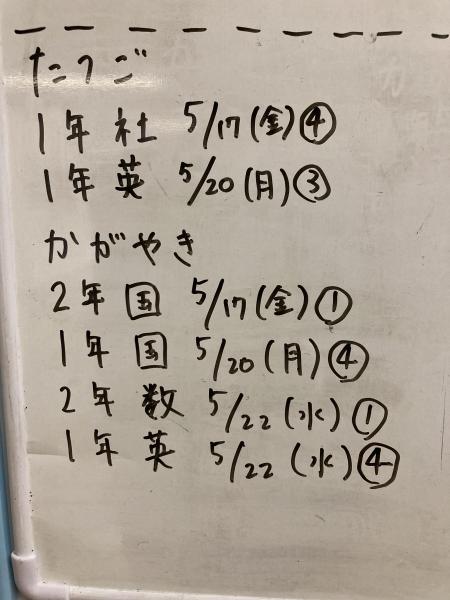 たつご
1年 社 5/17(金)④
1年 英 5/20(月)③
かがやき
2年 国 5/17(金)①
1年 国 5/20(月)④
2年 数 5/22(水)①
1年 英 5/22(水)④